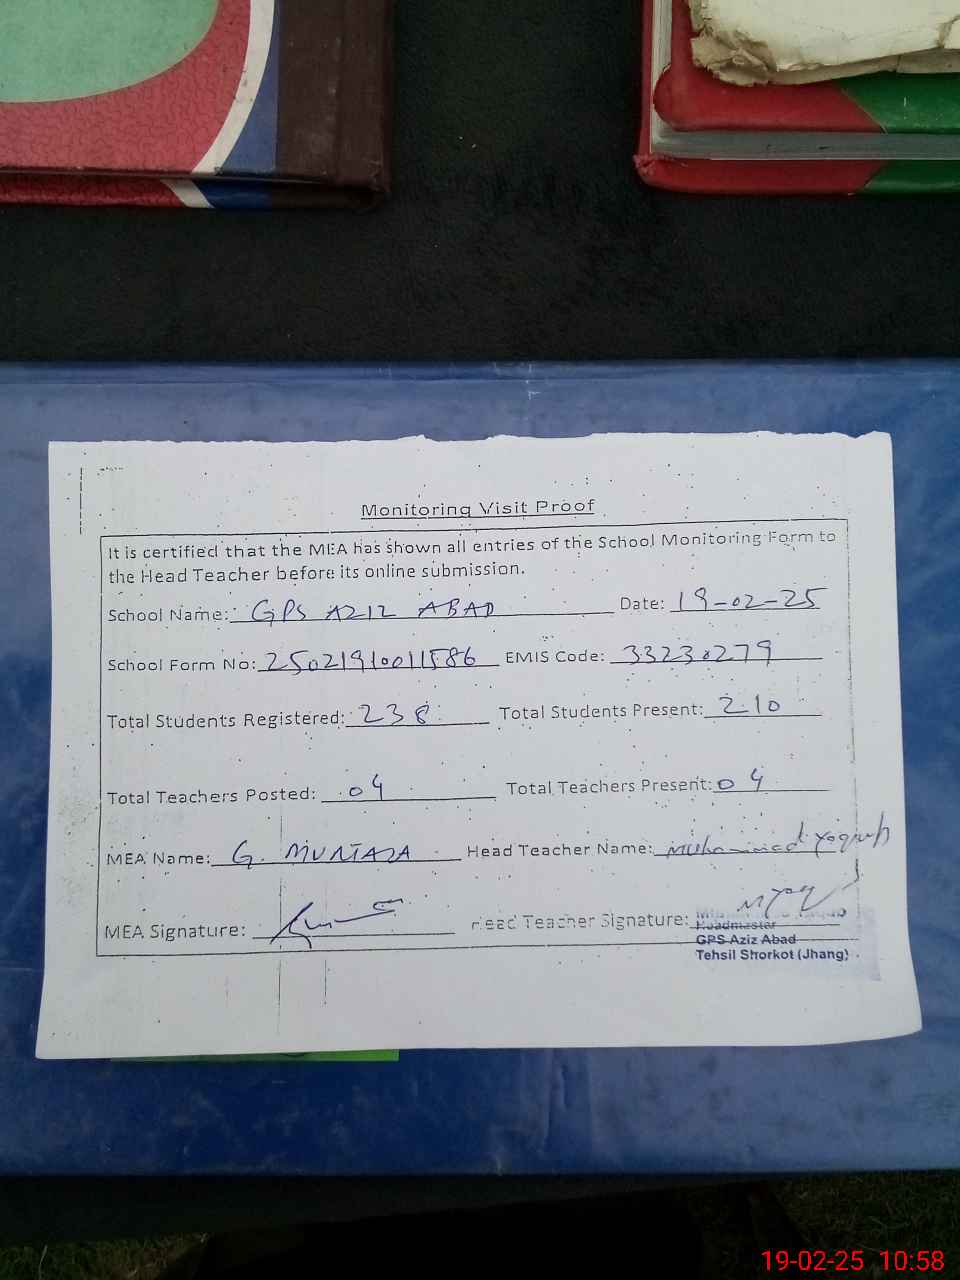 Monitoring Visit Proof
It is certified that the MEA has shown all entries of the School Monitoring Form to
the Head Teacher before its online submission.
School Name: GPS AZIZ ABAD Date: 19-02-25
School Form No: 25021910011586 EMIS Code: 33230279
Total Students Registered: 238 Total Students Present: 210
Total Teachers Posted: 04 Total Teachers Present: 04
MEA Name: G. MURTAZA Head Teacher Name: Muhammad Yaqoub
MEA Signature: Head Teacher Signature:
Headmaster
GPS Aziz Abad
Tehsil Shorkot (Jhang)
19-02-25 10:58